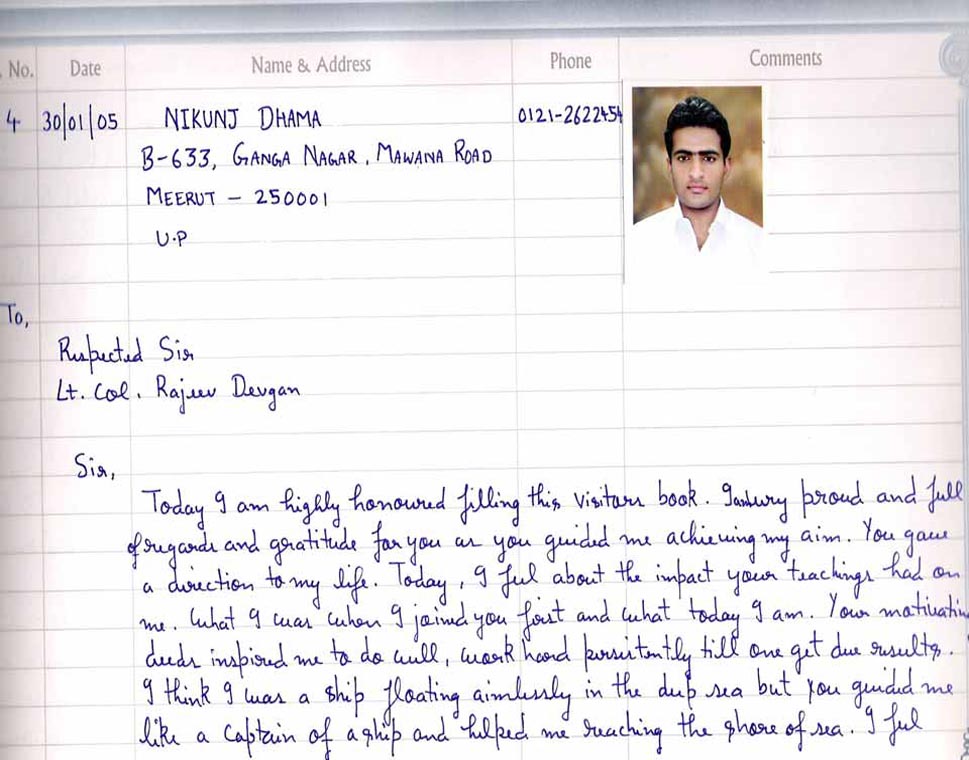 . No. Date Name & Address Phone Comments
4 30/01/05 NIKUNJ DHAMA 0121-2622454
B-633, GANGA NAGAR, MAWANA ROAD
MEERUT - 250001
U.P
To,
Respected Sir
Lt. Col. Rajeev Devgan
Sir,
Today I am highly honoured filling this visitors book. I am very proud and full
of regards and gratitude for you as you guided me achieving my aim. You gave
a direction to my life. Today, I feel about the impact your teachings had on
me. What I was when I joined you first and what today I am. Your motivatin
deeds inspired me to do well, work hard persistently till one get due results.
I think I was a ship floating aimlessly in the deep sea but you guided me
like a captain of a ship and helped me reaching the shore of sea. I feel